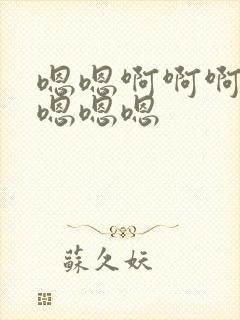 嗯嗯啊啊啊
嗯嗯嗯
蘇久妖